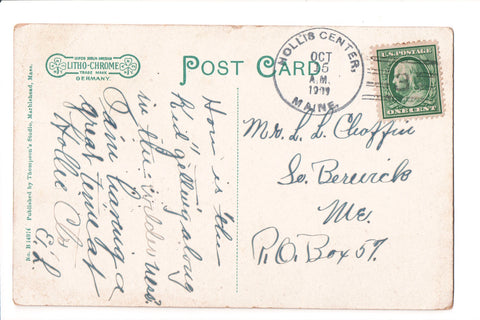 SUPER BERLIN-DRESDEN
LITHO-CHROME
TRADE MARK
GERMANY.
POST CARD.
HOLLIS CENTER,
OCT
5
A.M.
MAINE.
U.S.POSTAGE
ONE CENT
No. B 14974 Published by Thompson's Studio, Marblehead, Mass.
How is the
Kid gitting along
in the wilderness.
I am having a
great time at
Hollis Ctr
E. L.
Mr. L. L. Chaffin
So. Berwick
Me.
P.O. Box 57.